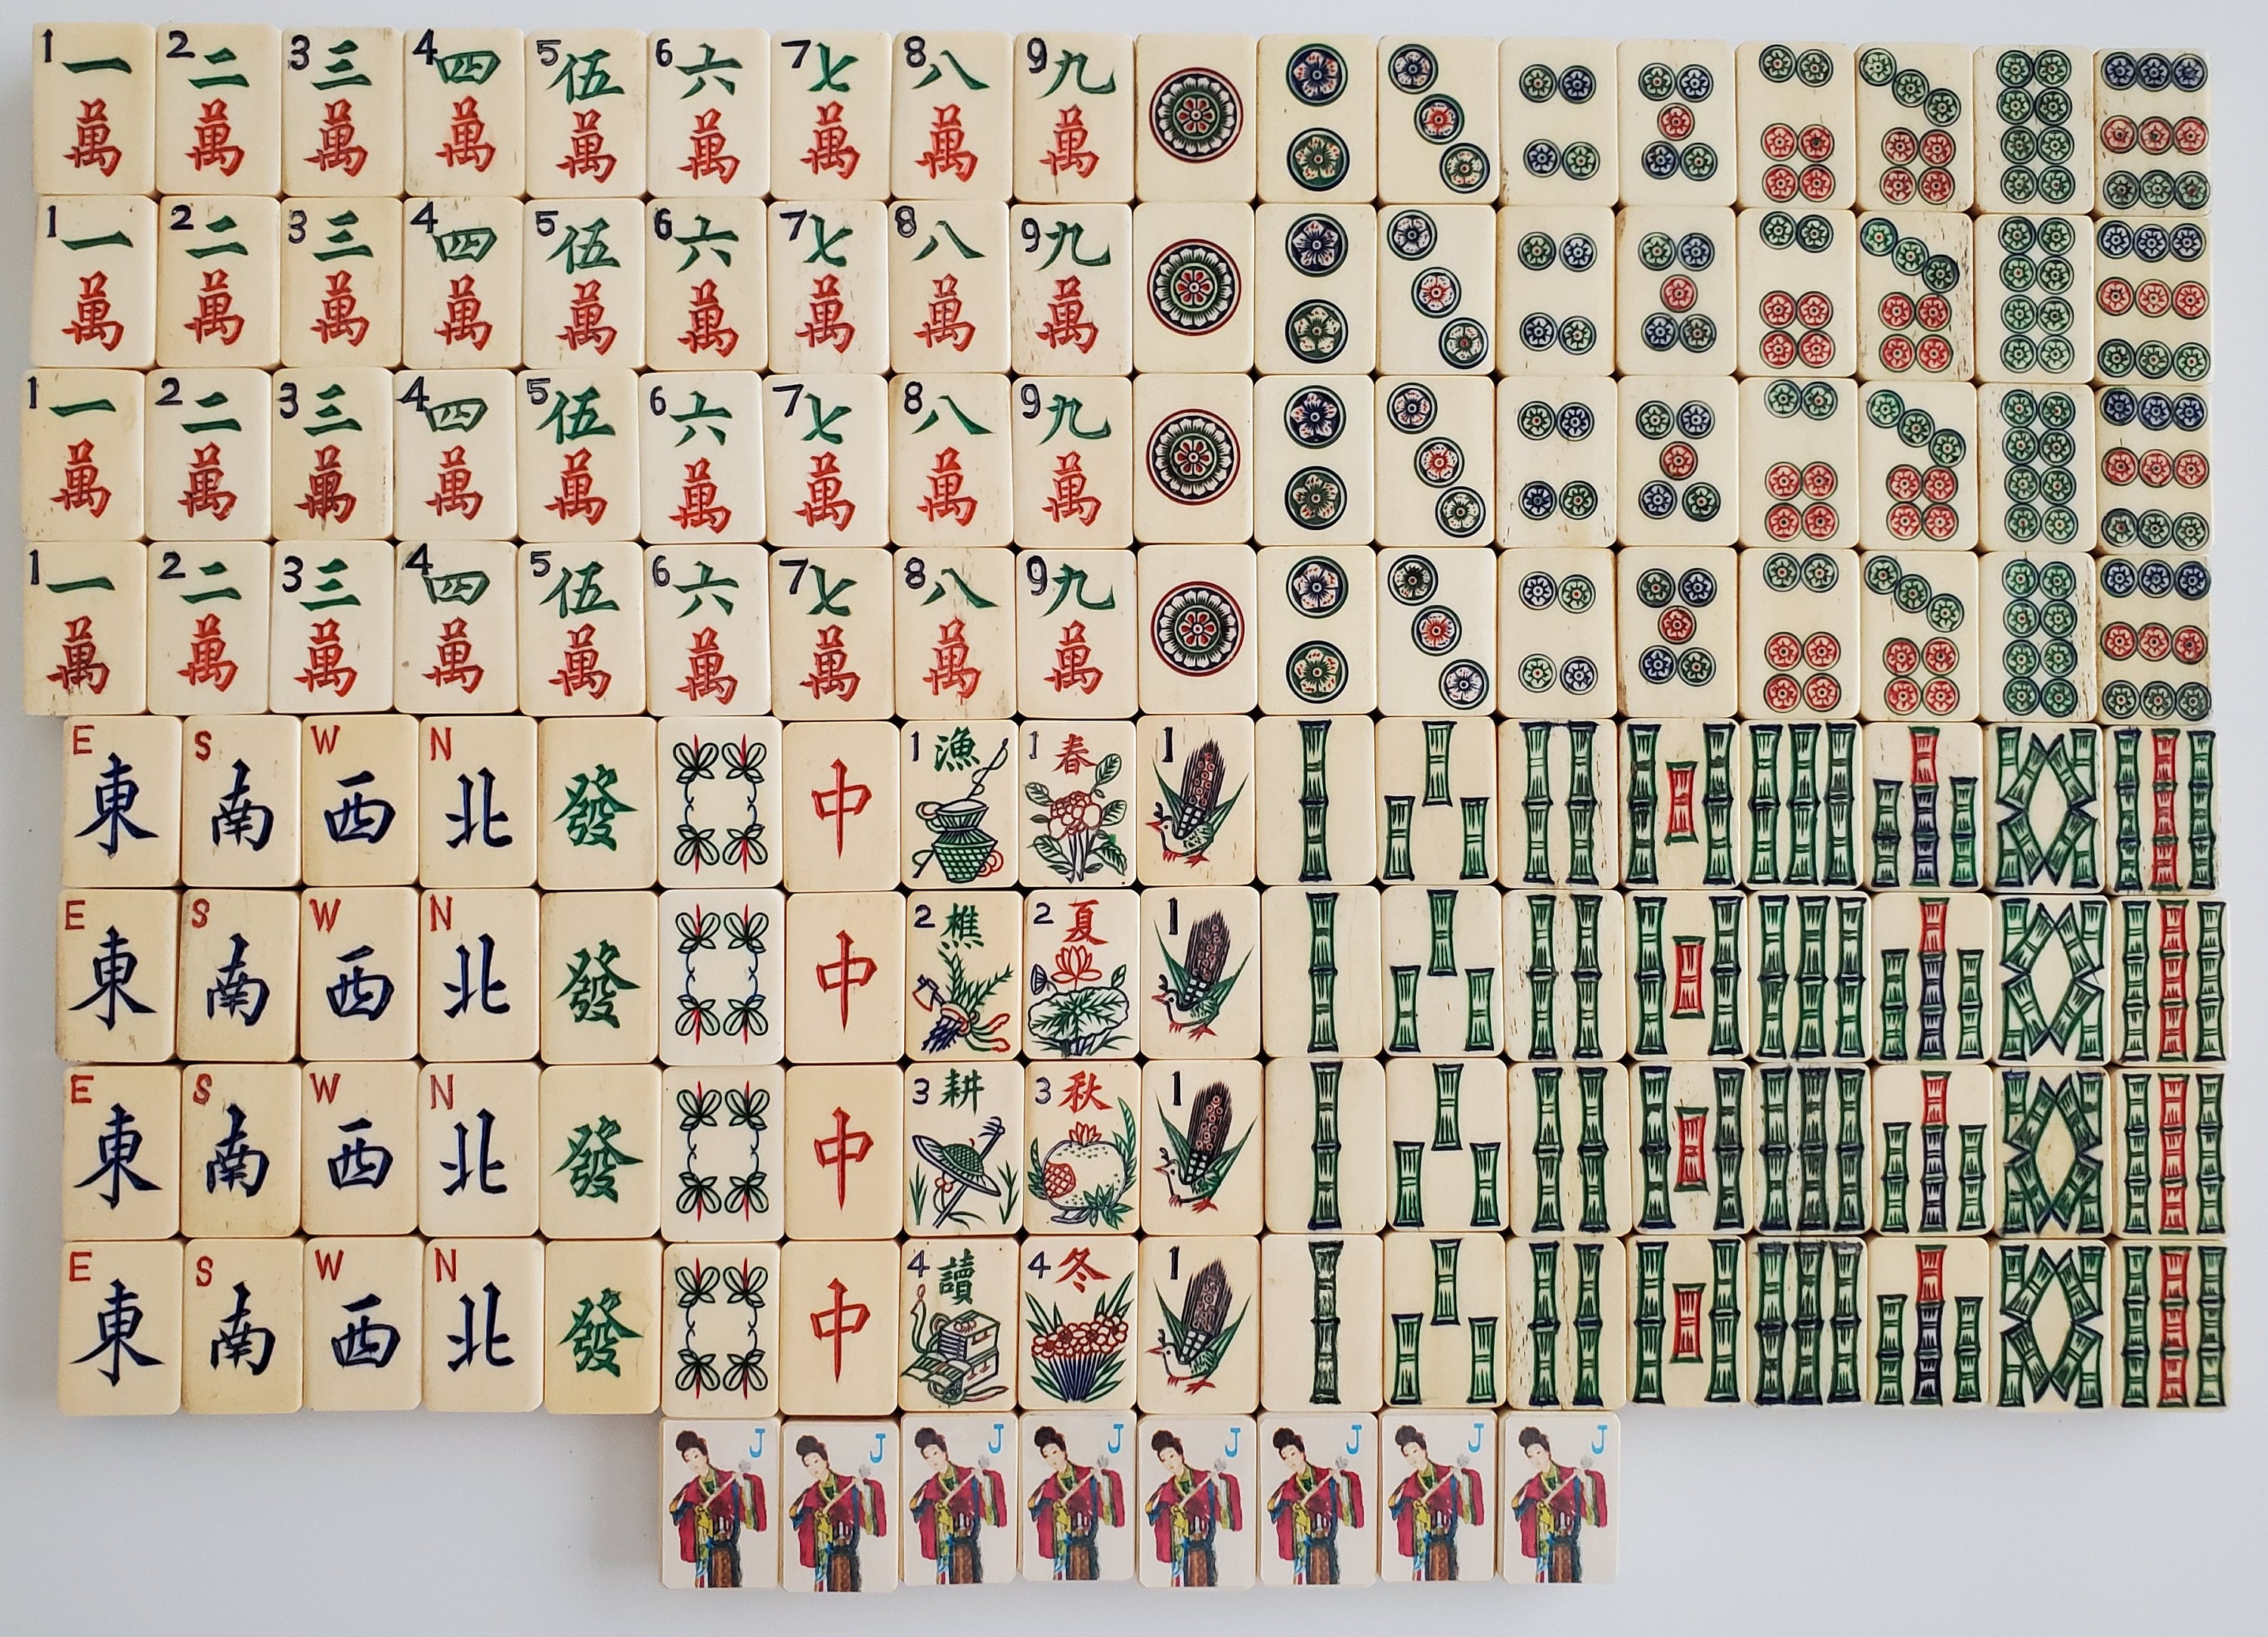 1 一 2 二 3 三 4 四 5 伍 6 六 7 七 8 八 9 九
萬 萬 萬 萬 萬 萬 萬 萬 萬
1 一 2 二 3 三 4 四 5 伍 6 六 7 七 8 八 9 九
萬 萬 萬 萬 萬 萬 萬 萬 萬
1 一 2 二 3 三 4 四 5 伍 6 六 7 七 8 八 9 九
萬 萬 萬 萬 萬 萬 萬 萬 萬
1 一 2 二 3 三 4 四 5 伍 6 六 7 七 8 八 9 九
萬 萬 萬 萬 萬 萬 萬 萬 萬
E S W N 1 漁 1 春 1
東 南 西 北 發 中
E S W N 2 樵 2 夏 1
東 南 西 北 發 中
E S W N 3 耕 3 秋 1
東 南 西 北 發 中
E S W N 4 讀 4 冬 1
東 南 西 北 發 中
J J J J J J J J